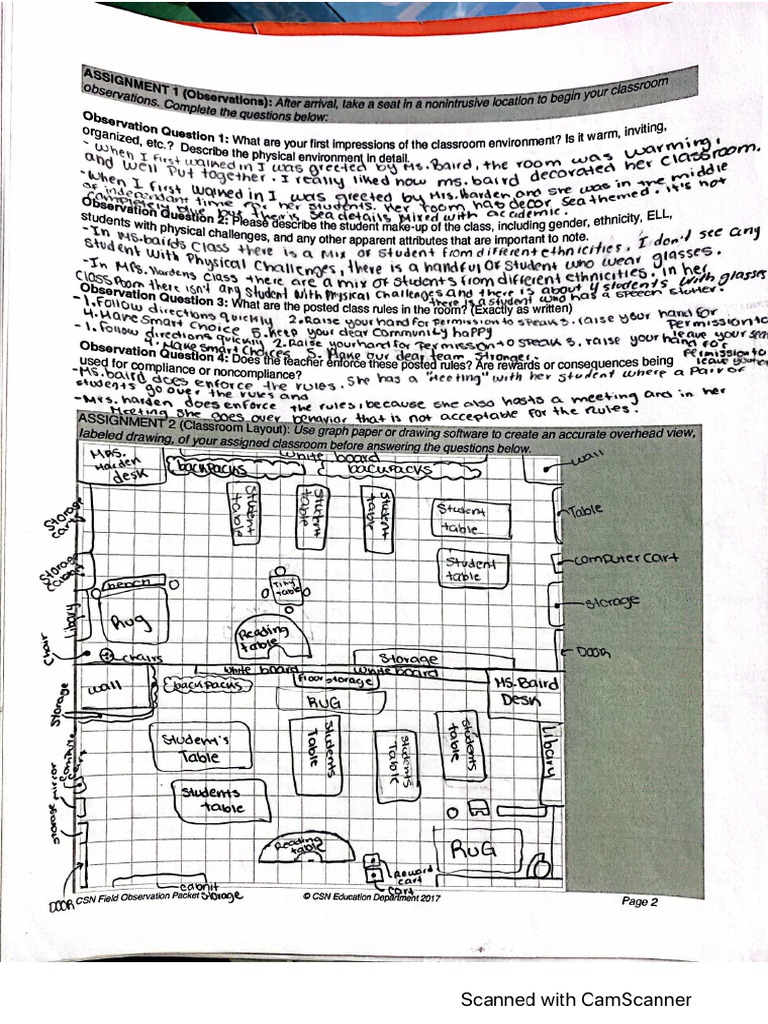 ASSIGNMENT 1 (Observations): After arrival, take a seat in a nonintrusive location to begin your classroom
observations. Complete the questions below:
Observation Question 1: What are your first impressions of the classroom environment? Is it warm, inviting,
organized, etc.? Describe the physical environment in detail.
- When I first walned in I was greeted by Ms. Baird, the room was warming,
and well put together. I really liked how ms. baird decorated her classroom.
- When I first walned in I was greeted by Mrs. Harden and she was in the middle
of independant time for her students. Her room has decor sea themed. it's not
completely there is sea details mixed with academic.
Observation Question 2: Please describe the student make-up of the class, including gender, ethnicity, ELL,
students with physical challenges, and any other apparent attributes that are important to note.
- In Ms. bairds Class there is a mix of student from different ethnicities. I don't see any
Student with Physical Challenges, there is a handful of student who wear glasses.
- In Mrs. hardens class there are a mix of students from different ethnicities. in her
classroom there isn't any Student with Physical Challenges and there is about 4 students with glasses
there is a student who has a speech stutter.
Observation Question 3: What are the posted class rules in the room? (Exactly as written)
- 1. Follow directions quickly 2. Raise your hand for Permission to speak 3. raise your hand for
Permission to leave your seat
4. Make Smart Choice 5. keep your dear community happy
- 1. Follow directions quickly 2. Raise your hand for Permission to speak 3. raise your hand for
Permission to leave your
4. Make smart choices 5. Make our dear team Stronger.
Observation Question 4: Does the teacher enforce these posted rules? Are rewards or consequences being
used for compliance or noncompliance?
- Ms. baird does enforce the rules. She has a "Meeting" with her student where a Pair of
students go over the rules and
- Mrs. harden does enforce the rules, because she also hosts a meeting and in her
Meeting she goes over behavior that is not acceptable for the rules.
ASSIGNMENT 2 (Classroom Layout): Use graph paper or drawing software to create an accurate overhead view,
labeled drawing, of your assigned classroom before answering the questions below.
Mrs. Harden desk
white board
backpacks
backpacks
wall
Storage cart
Student table
Student table
Student table
Student table
Table
Storage cabnit
Student table
computer cart
bench
Tiny table
Storage
Library
Rug
Reading table
Chair
chairs
Storage
DOOR
white board
white board
wall
backpacks
floor storage
Ms. Baird Desk
Storage
RUG
Student's Table
Students Table
Students Table
Students Table
Library
Students table
mirror
storage
Reading table
RUG
Reward cart
cart
DOOR
cabnit
storage
CSN Field Observation Packet
© CSN Education Department 2017
Page 2
Scanned with CamScanner